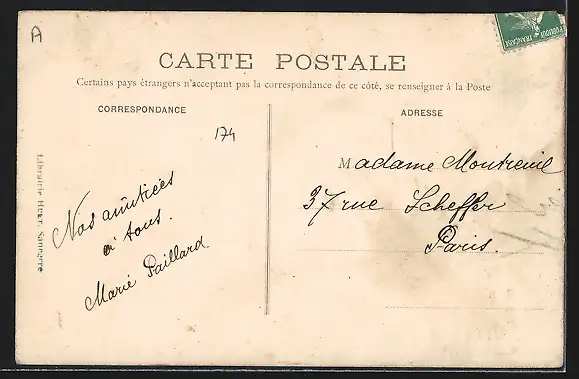 A
CARTE POSTALE
Certains pays étrangers n'acceptant pas la correspondance de ce côté, se renseigner à la Poste
CORRESPONDANCE
ADRESSE
174
Nos amitiées
à tous.
Marie Paillard
Madame Montreuil
37 rue Scheffer
Paris.
Librairie Sancerre
FRANÇAISE